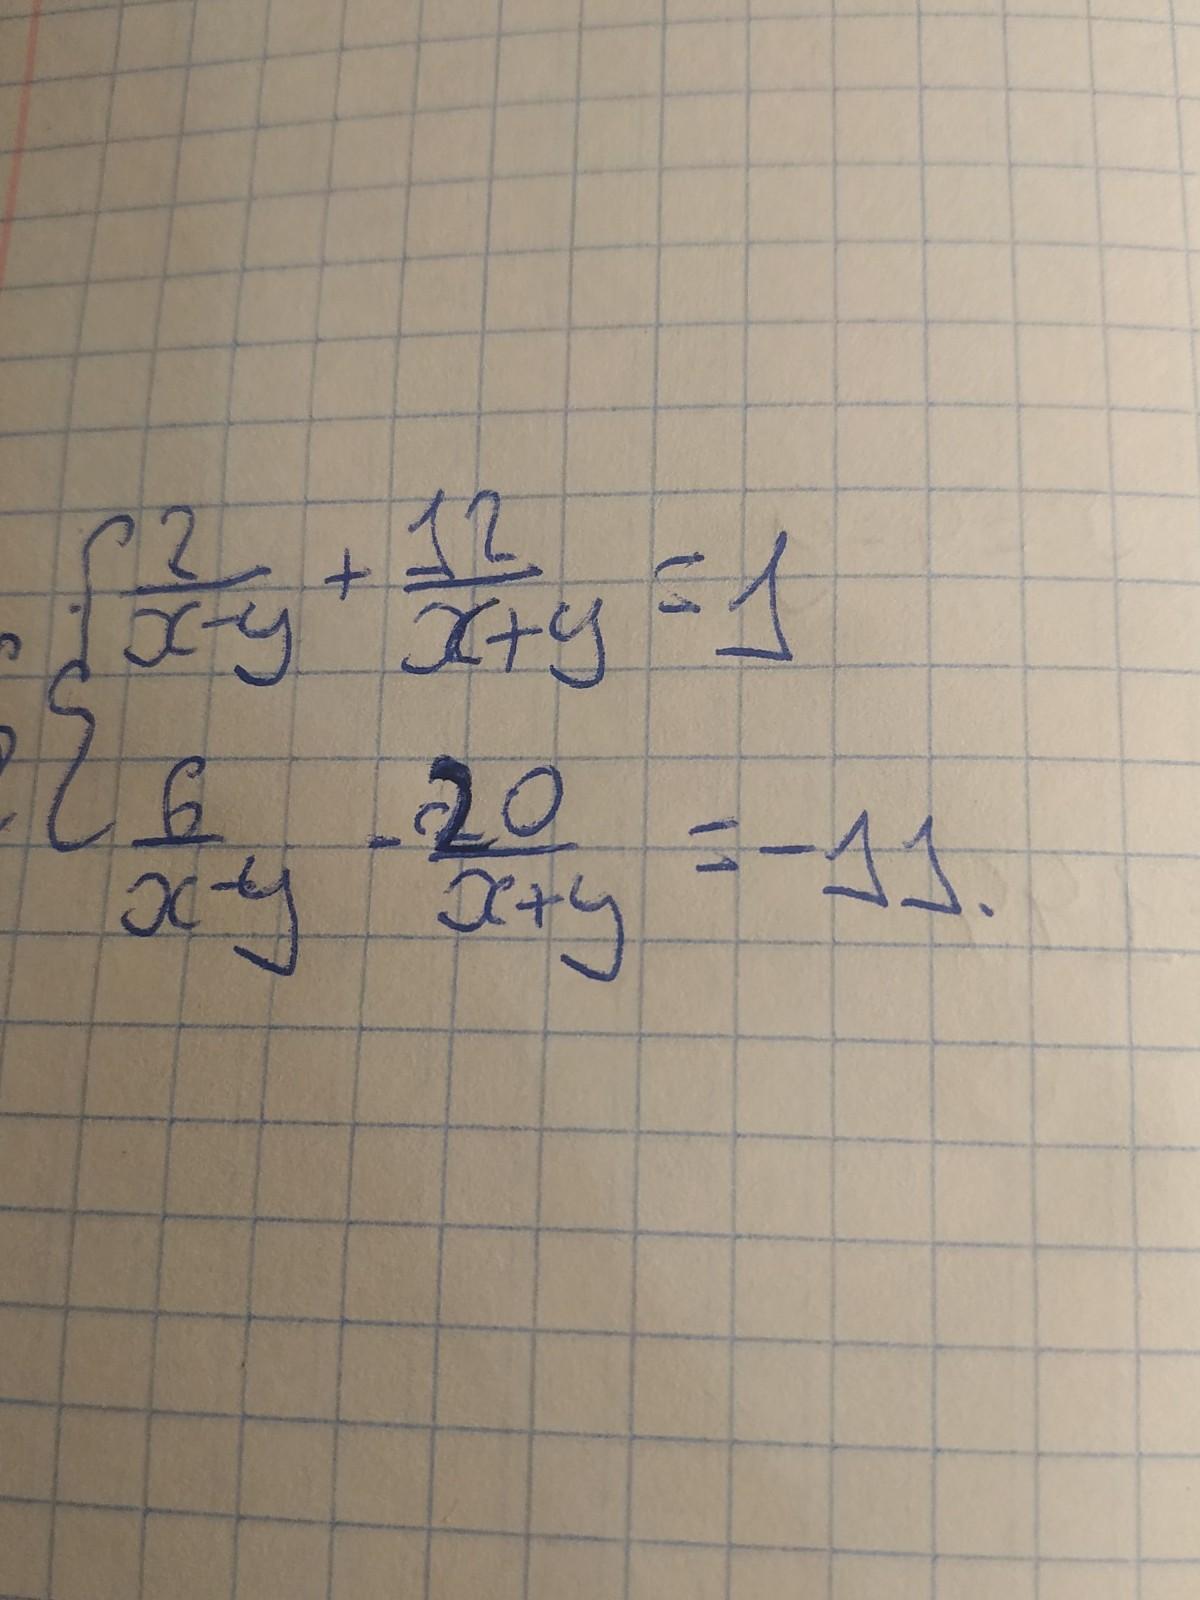 { 2/(x-y) + 12/(x+y) = 1
6/(x-y) - 20/(x+y) = -11.